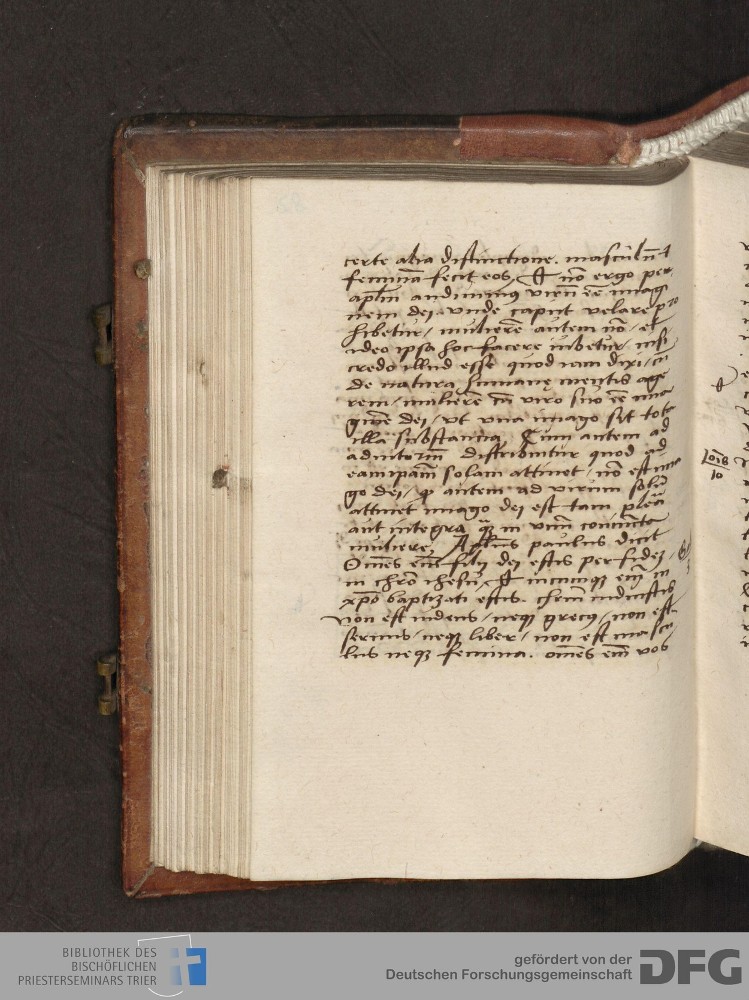 certe alia distinctione. masculū &
feminā fecit eos, nō ergo per
aplm̄ audimus virū eē imagi
nem dei. vnde caput velare pro
hibetur / mulierē autem nō / et
ideo ipsa hoc facere iubetur, nisi
credo illud esse quod iam dixi /
de natura humanę mentis age
rem / mulierē viro suo eē ima
ginē dei / vt vna imago sit tota
illa substantia, Cum autem ad
adiutoriū distribuitur quod ad
eam ipam̄ solam attinet / nō est ima
go dei / autem ad virum solū
attinet imago dei est tam plena
aut integra in vnū coniuncta
muliere, Aplus paulus dicit
Omēs em̄ filij dei estis per fidej
in chrō ihesu, quicunqȝ em̄ in
xpō baptizati estis. chrm̄ induistis
non est iudeus / neqȝ grecus / non est
seruus / neqȝ liber / non est mascu
lus neqȝ femina. omēs em̄ vos
10
BIBLIOTHEK DES
BISCHÖFLICHEN
PRIESTERSEMINARS TRIER
gefördert von der
Deutschen Forschungsgemeinschaft
DFG